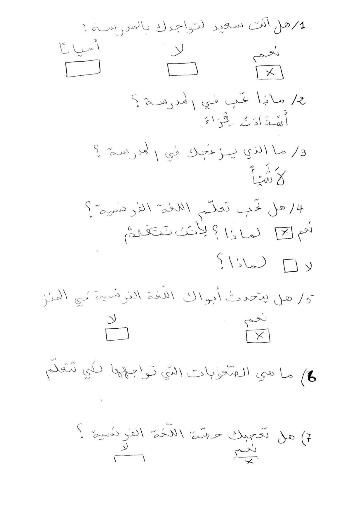 1/ هل أنت سعيد لتواجدك بالمدرسة ؟
نعم لا أحيانًا
X
2/ ماذا تحب في المدرسة ؟
3/ ما الذي يزعجك في المدرسة ؟
لا شيئاً
4/ هل تحب تعلّم اللغة الفرنسية ؟
نعم X لماذا ؟
لا لماذا ؟
5/ هل يتحدث أبواك اللغة الفرنسية في المنز
نعم لا
X
6) ما هي الصّعوبات التي تواجهها لكي تتعلّم
7) هل تعجبك حصّة اللّغة الفرنسية ؟
نعم لا
X